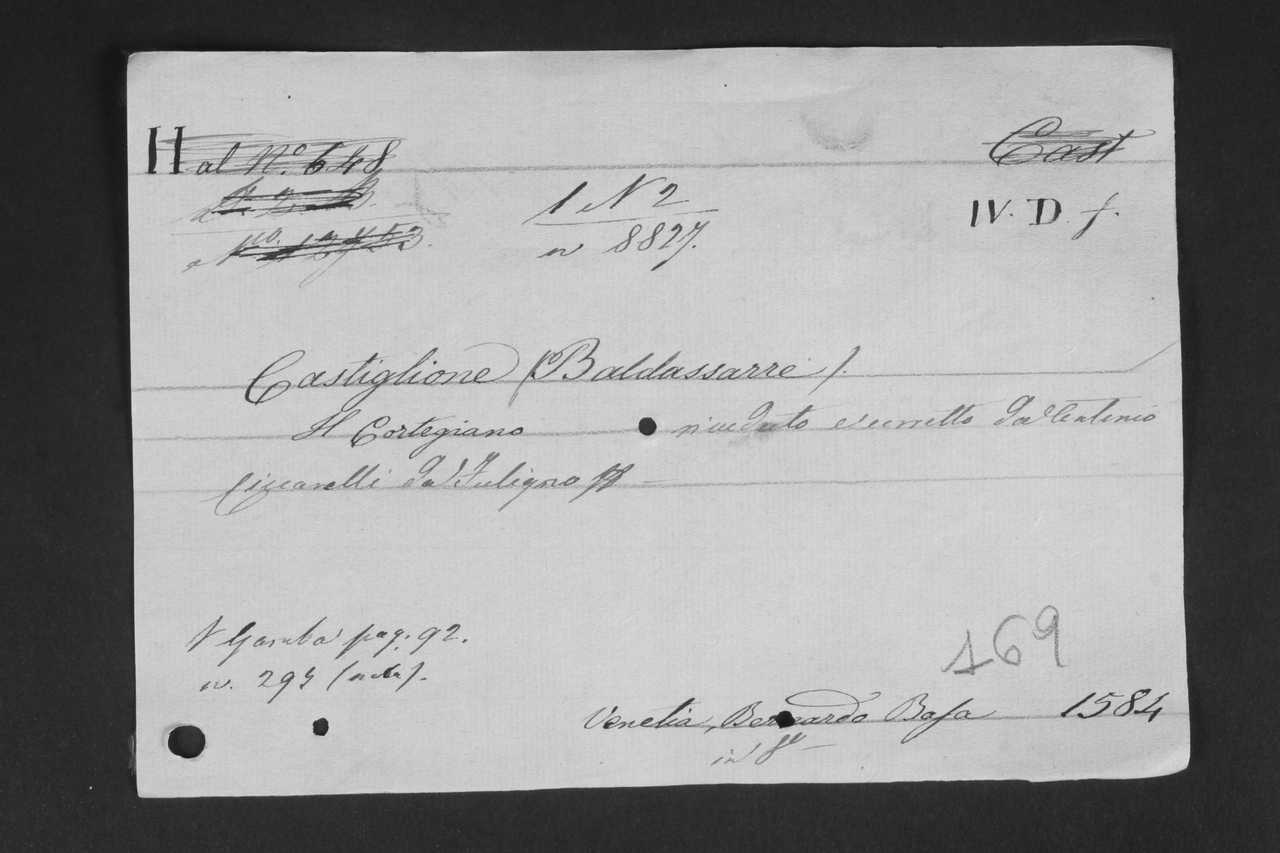 H al N.º 648
Cast
IV. D. f.
1 N 2
n 8827.
Castiglione (Baldassarre).
Il Cortegiano riveduto e corretto da Antonio
Ciccarelli da Fuligno
V Gamba pag. 92.
n. 294 (nota).
169
Venetia, Bernardo Basa 1584
in 8º